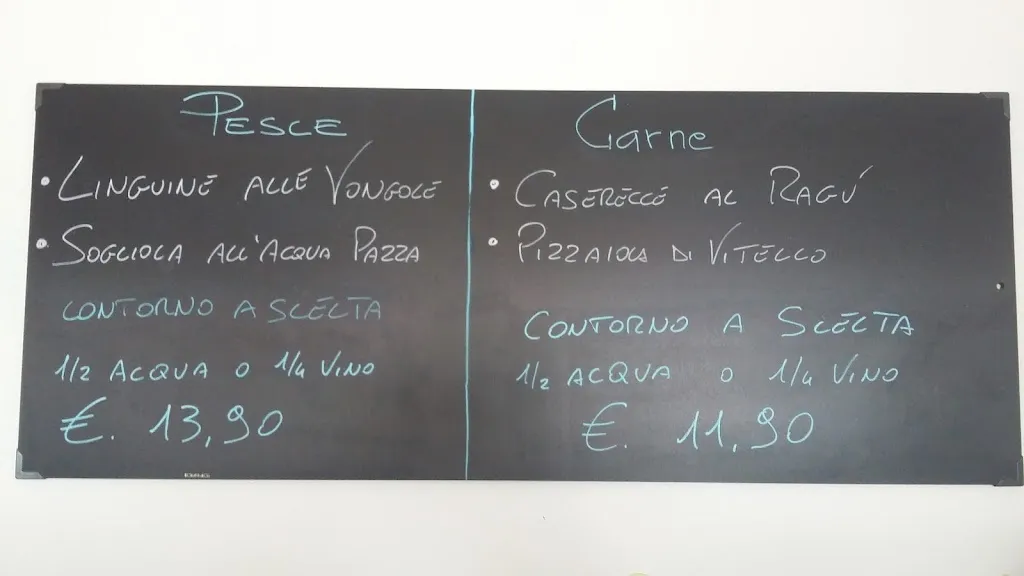 PESCE
• LINGUINE ALLE VONGOLE
• SOGLIOLA ALL'ACQUA PAZZA
CONTORNO A SCELTA
1/2 ACQUA O 1/4 VINO
€. 13,90
Carne
• CASERECCE AL RAGÚ
• PIZZAIOLA DI VITELLO
CONTORNO A SCELTA
1/2 ACQUA O 1/4 VINO
€. 11,90